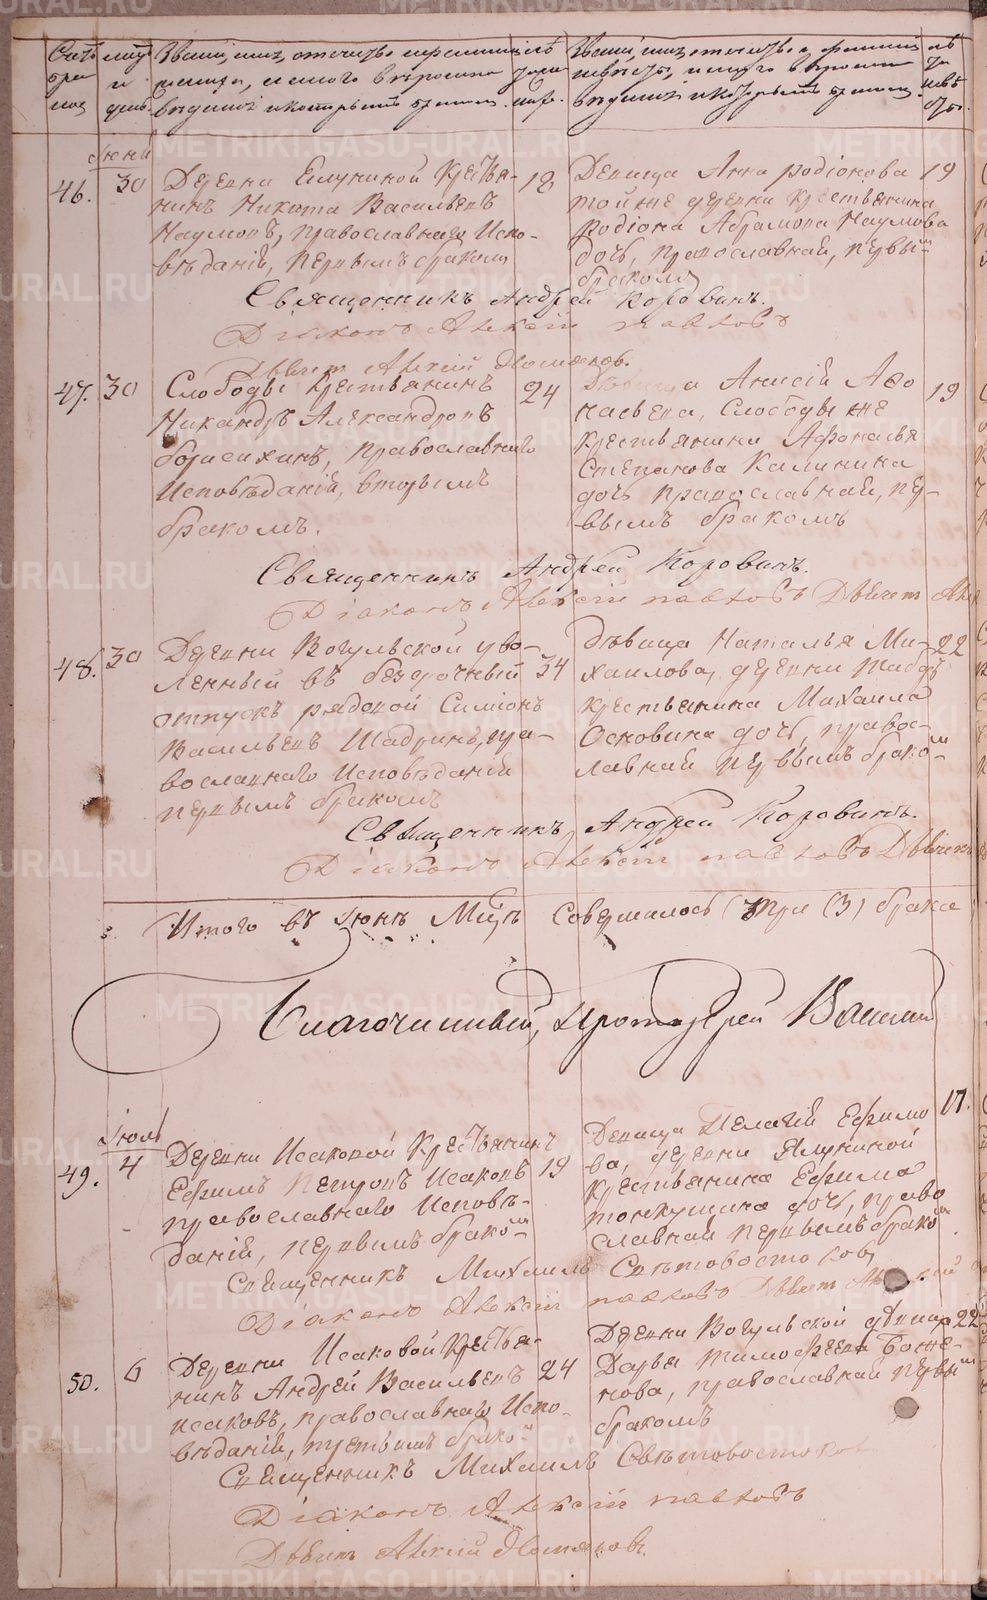 Счетъ браковъ
Мѣсяцъ и день
Званіе, имя, отчество, фамилія жениха, и котораго вѣроисповѣданія и которымъ бракомъ
лѣта жениха
Званіе, имя, отчество, фамилія невѣсты, и котораго вѣроисповѣданія и которымъ бракомъ
лѣта невѣсты
Іюнь
46.
30
Деревни Елуниной Крестья-
нинъ Никита Васильевъ
Наумовъ, православнаго Испо-
вѣданія, первымъ бракомъ
18
Девица Анна Родіонова
той же деревни крестьянина
Родіона Абрамова Наумова
дочь, православная, первымъ
бракомъ
19
Священникъ Андрей Коровинъ.
Діаконъ Алексій Павловъ
47.
30
Слободы крестьянинъ
Никандръ Александровъ
Борисихинъ, православнаго
Исповѣданія, вторымъ
бракомъ.
24
Девица Анисія Афо
насьева, Слободы же
крестьянина Афонасья
Степанова Калинина
дочь православная, пер-
вымъ бракомъ
19
Священникъ Андрей Коровинъ.
Діаконъ Алексій Павловъ
48.
30
Деревни Вогульской уво-
ленный въ безсрочный
отпускъ рядовой Симіонъ
Васильевъ Шадринъ, пра-
вославнаго Исповѣданія
первымъ бракомъ
34
Дѣвица Наталья Ми-
хаилова, деревни
крестьянина Михаила
Основина дочь, правос-
лавная первымъ брако-мъ
22
Священникъ Андрей Коровинъ.
Діаконъ Алексій Павловъ
Итого въ Іюнѣ Мцѣ Совершилось Три (3) брака
Благочинный, Протоіерей Василій
Іюль
49.
4
Деревни Исаковой Крестьянинъ
Ефимъ Петровъ Исаковъ
православнаго Исповѣ-
данія, первымъ брако-мъ
19
Девица Пелагія Ефимо
ва, деревни Ялуниной
крестьянина Ефима
дочь, право
славная первымъ брако-мъ
17.
Священникъ Михаилъ Свѣтовостоковъ
Діаконъ Алексій Павловъ
50.
6
Деревни Исаковой Крестья-
нинъ Андрей Васильевъ
Исаковъ, православнаго Испо-
вѣданія, третьимъ брако-мъ
24
Деревни Вогульской девица
Дарья Тимофеева Боже-
нова, православная первымъ
бракомъ
22
Священникъ Михаилъ Свѣтовостоков
Діаконъ Алексій Павловъ
METRIKI.GASO-URAL.RU